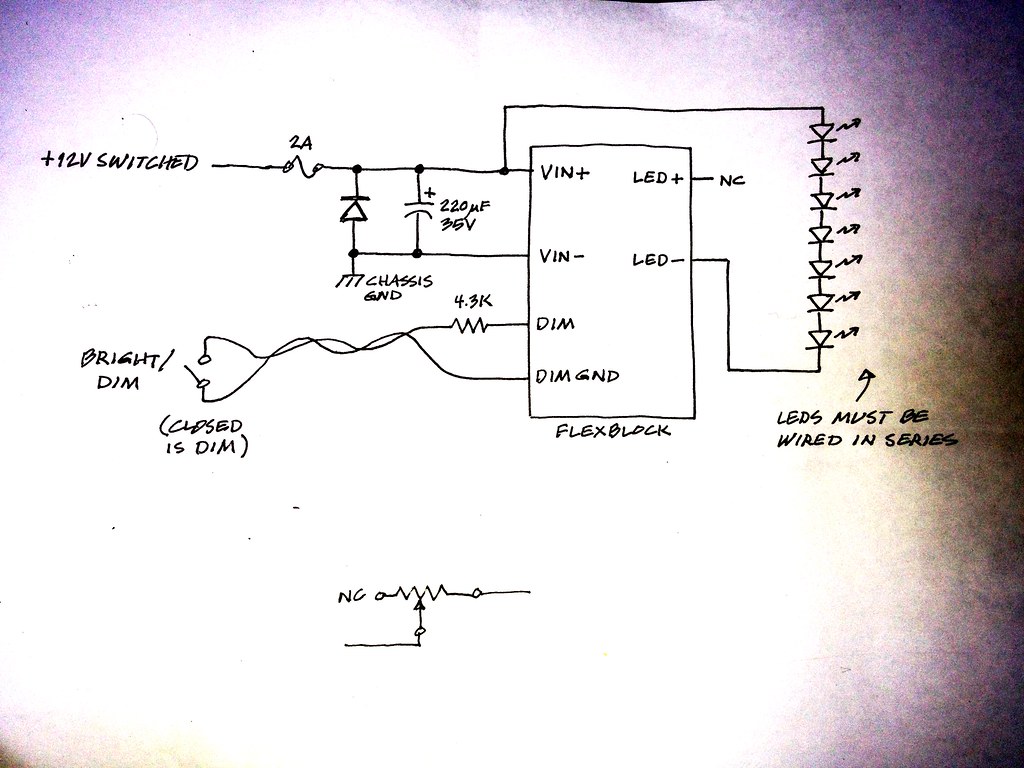 +12V SWITCHED
2A
+
220µF
35V
CHASSIS
GND
VIN+
VIN-
LED+
NC
LED-
4.3K
DIM
DIM GND
FLEXBLOCK
BRIGHT/
DIM
(CLOSED
IS DIM)
LEDS MUST BE
WIRED IN SERIES
NC